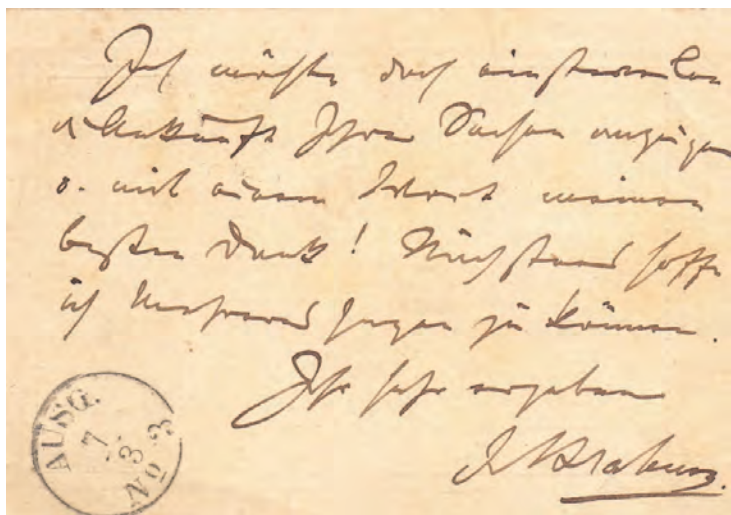 Ich möchte doch einstweilen
d. Ankunft Ihrer Sachen anzeigen
u. mit einem Wort meinen
besten Dank! Nächstens hoffe
ich Mehreres sagen zu können.
Ihr sehr ergebener
J. Brahms.
AUSG.
7
No 3